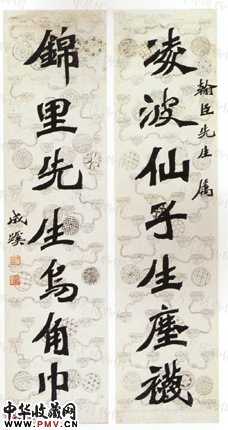 翰臣先生屬
凌波仙子生塵襪
錦里先生烏角巾
成蹊
中华收藏网
www.PMV.CN